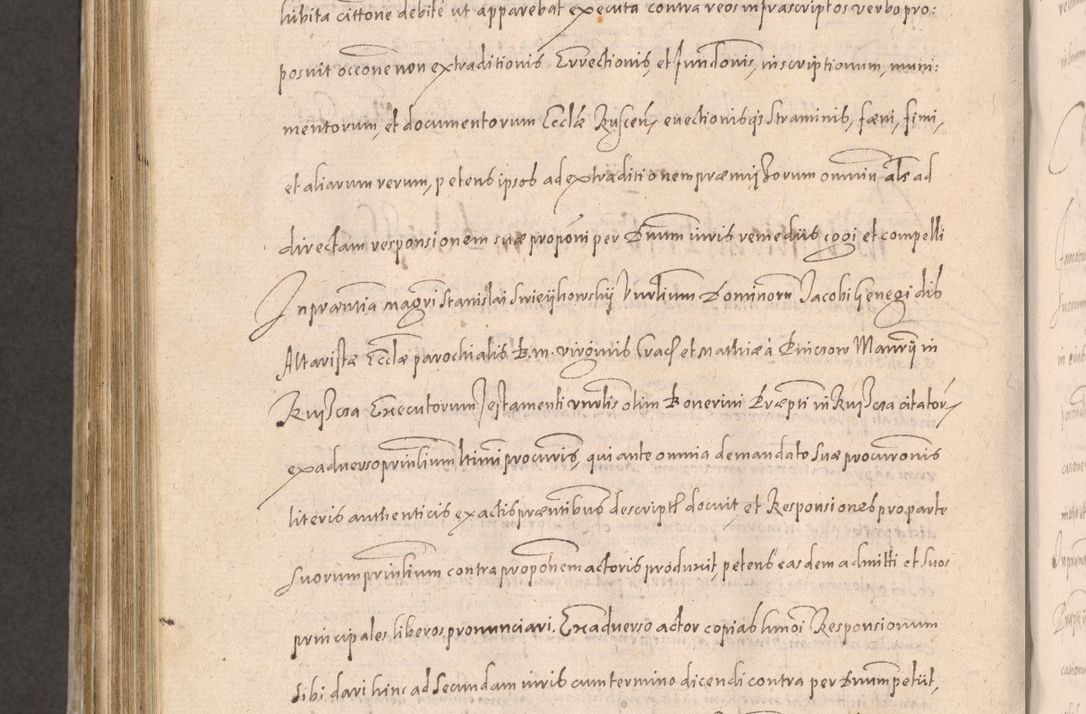 lubita cittone debite ut apparebat executa contra reos infrascriptos verbo pro:
posuit occone non extraditionis Errectionis, et fundonis, inscriptionum, muni:
mentorum, et documentorum Ecclæ Ruscen, euectionisqz straminis, fæni, fimi,
et aliarum rerum, petens ipsos ad extraditionem præmissorum omniu als ad
directam responsionem suæ proponi per Dnum iuris remediis cogi et compelli
In præntia magri Stanislai Swieijkowskij Dominorum Jacobi
Altaristæ Ecclæ parochialis B. M. virginis Crac et Mathiæ à in
Executorum testamenti olim Præpti in citator,
ex aduerso prinlium ltimi procuris, qui ante omnia de mandato suæ procuronis
literis authenticis ex actis præntibus descript docuit, et Responsiones pro parte
suorum prinlium contra proponem actoris produxit, petens easdem admitti et suos
principales liberos pronunciari. Ex aduerso actor copias hmoi Responsionum
sibi dari hinc ad secundam iuris cum termino dicendi contra per Dnum petiit,